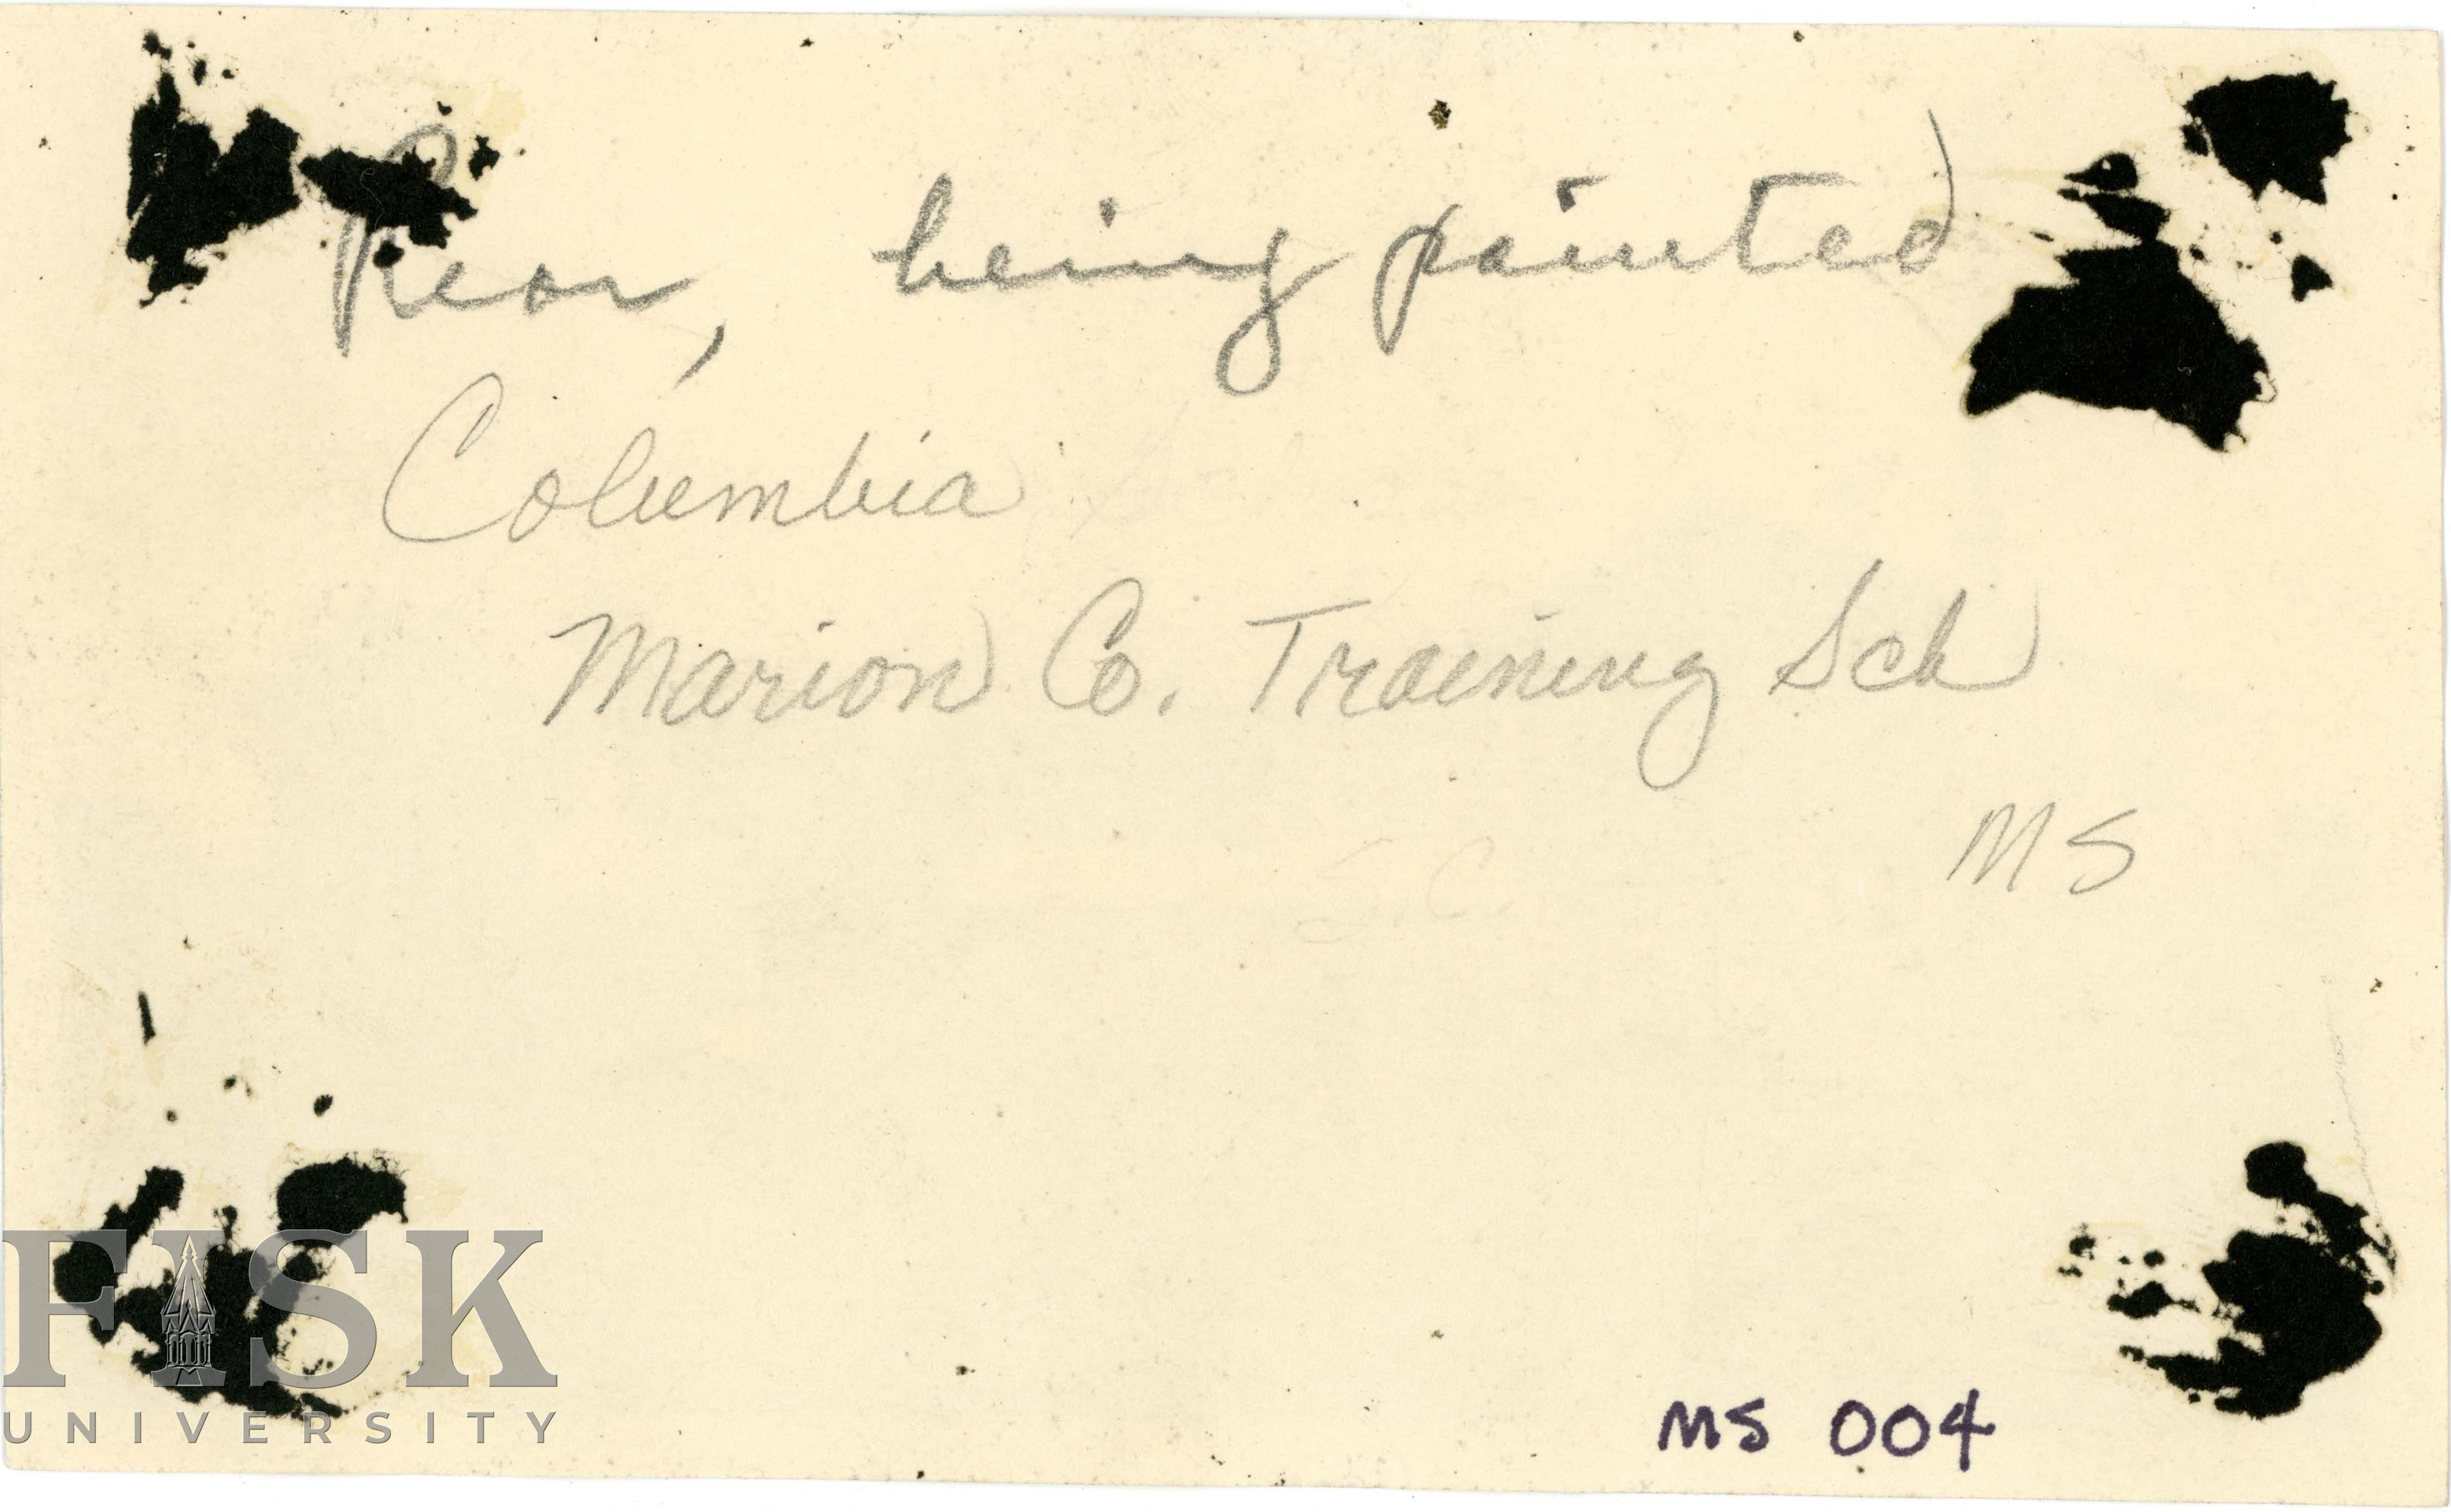 Rear, being painted
Columbia
Marion Co. Training Sch
MS
S.C.
MS 004
FISK
UNIVERSITY